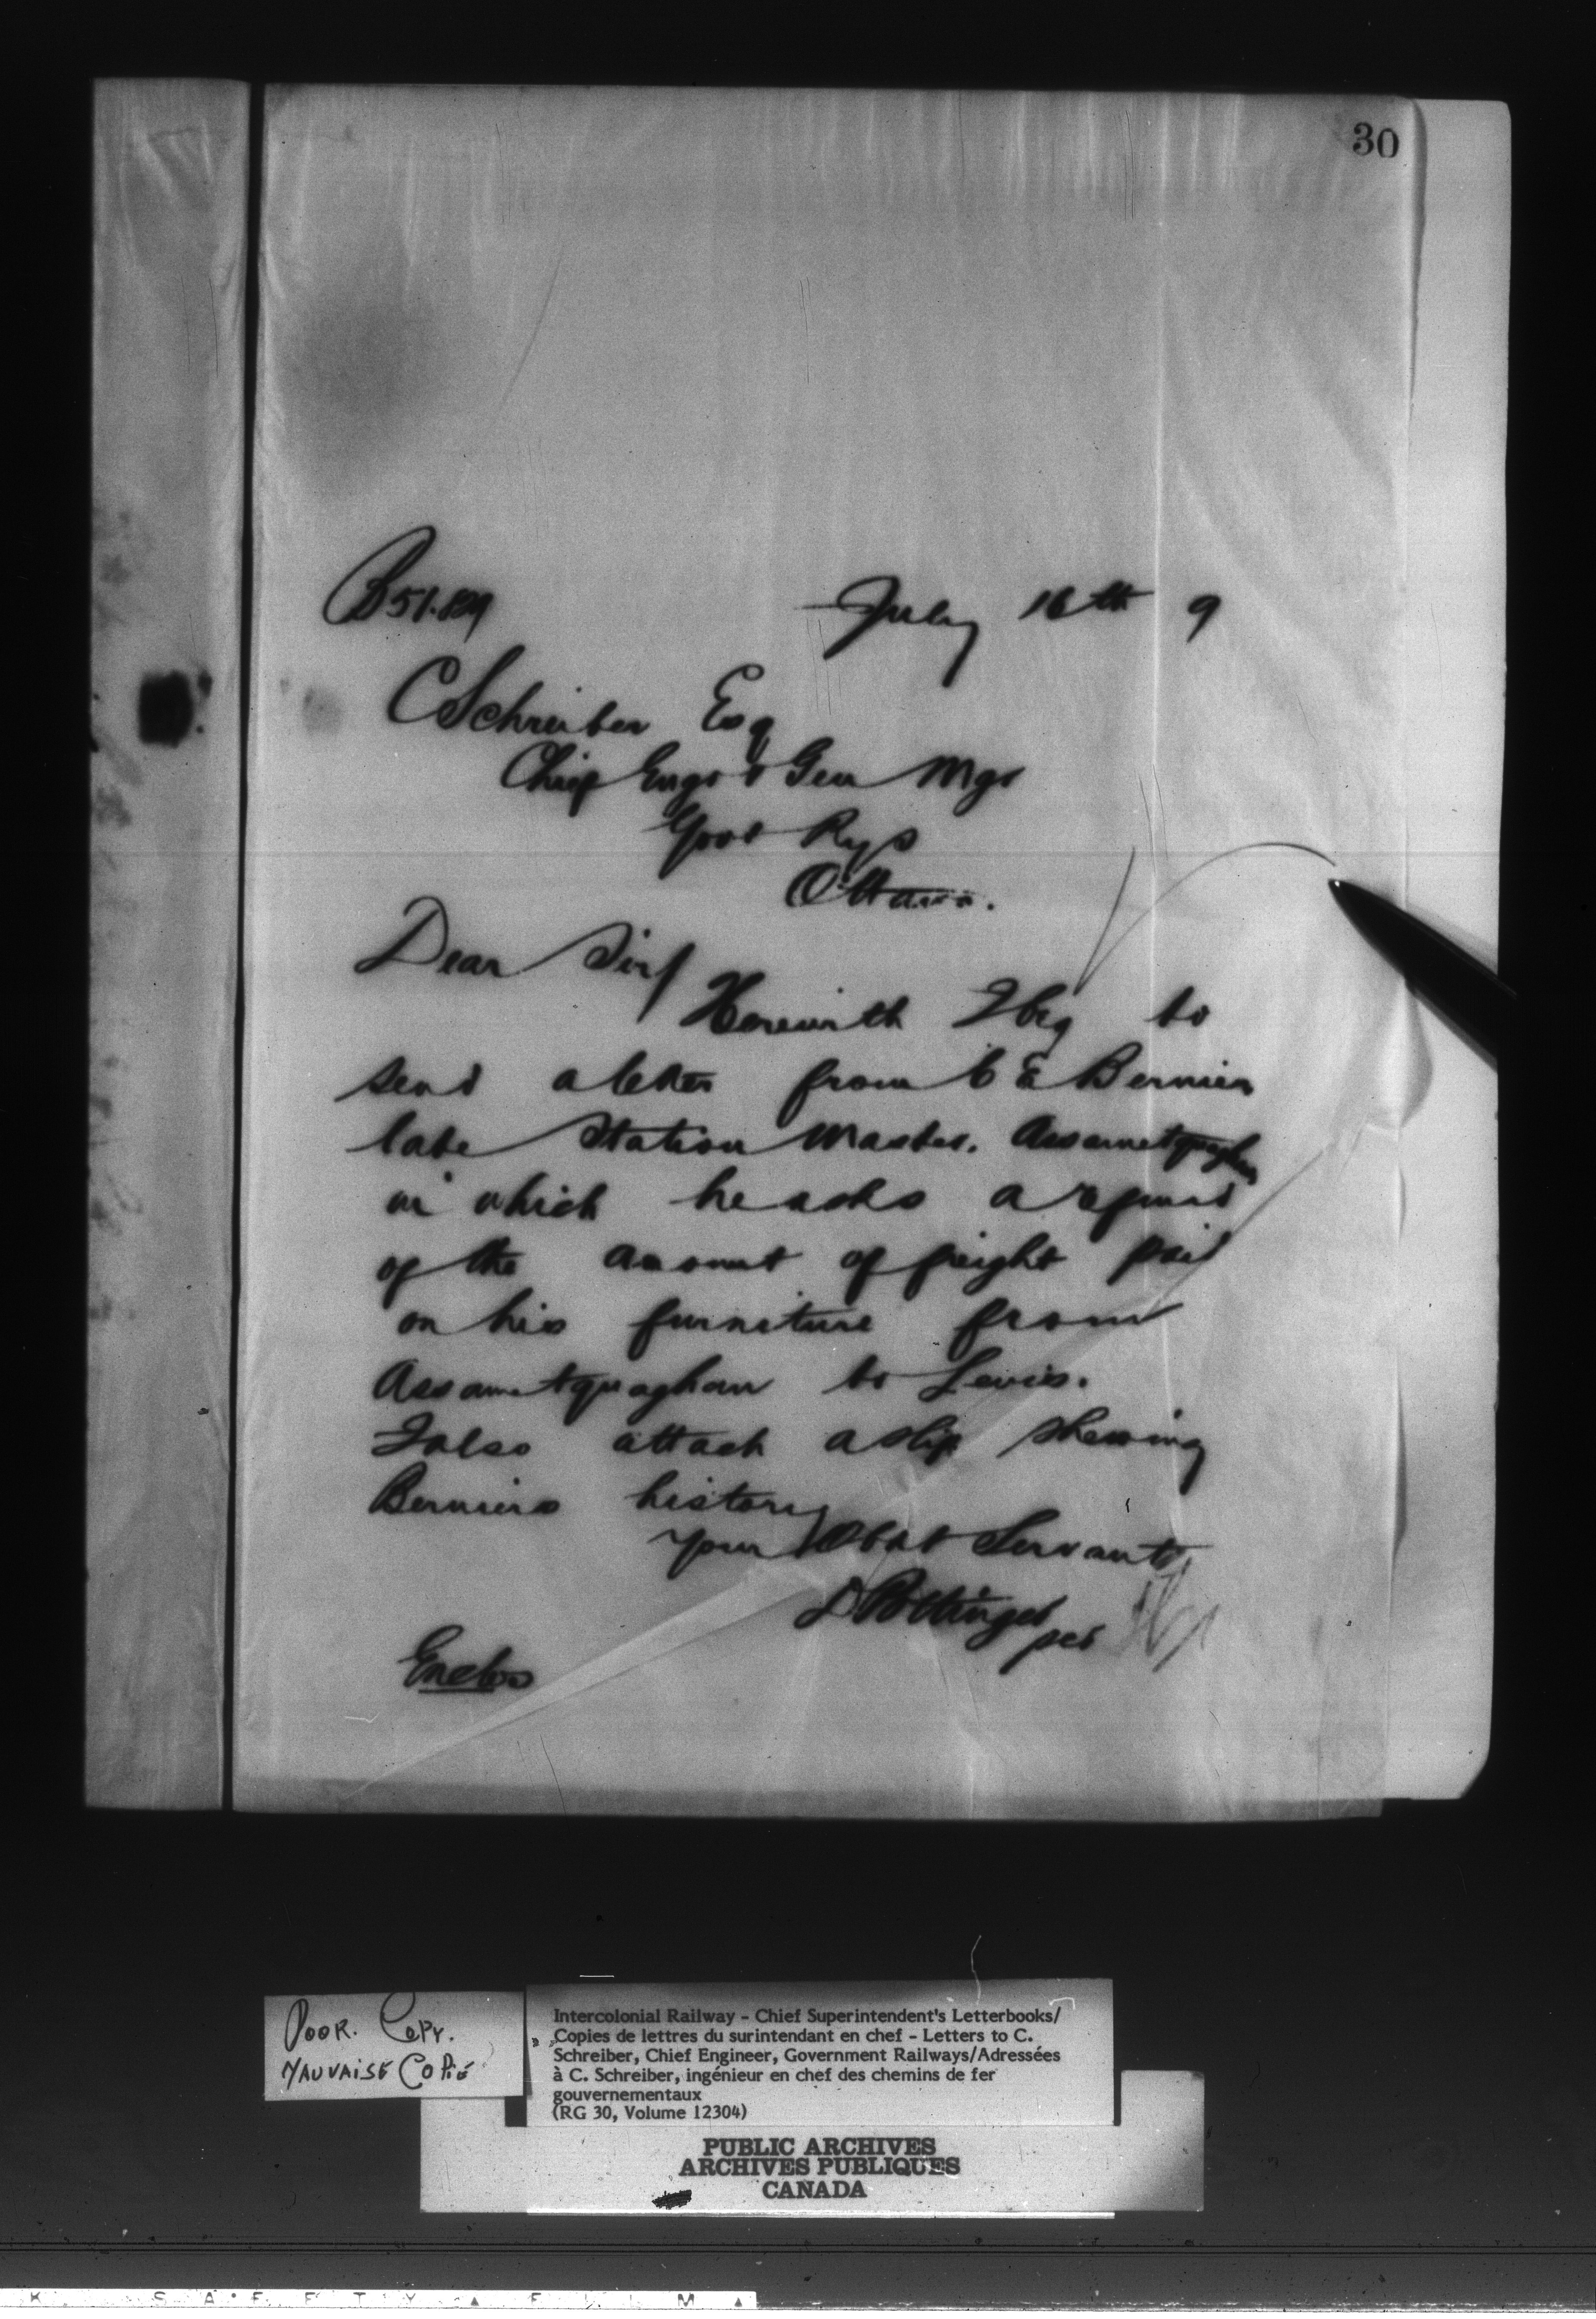 30
July 16th 9
C Schreiber Esq
Chief Engr & Gen Mgr
Govt Rys
Ottawa.
Dear Sir/
Herewith I beg to
send a letter from C E Bernier
late Station Master. Assametquaghan
in which he asks a refund
of the amount of freight paid
on his furniture from
Assametquaghan to Levis.
I also attach a slip shewing
Berniers history
Your Obdt Servant
D Pottinger
per
Enclos
POOR. COPY.
MAUVAISE COPIE
Intercolonial Railway - Chief Superintendent's Letterbooks/
Copies de lettres du surintendant en chef - Letters to C.
Schreiber, Chief Engineer, Government Railways/Adressées
à C. Schreiber, ingénieur en chef des chemins de fer
gouvernementaux
(RG 30, Volume 12304)
PUBLIC ARCHIVES
ARCHIVES PUBLIQUES
CANADA
K SAFETY ▲ FILM ▲